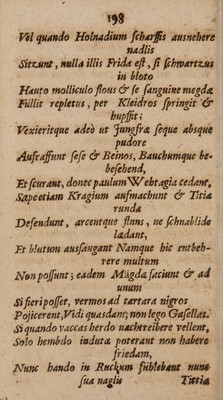 198
Vel quando Holnadium scharffis ausnehere
nadlis
Sitzunt, nulla illis Frida est, si schwartzus
in bloto
Hauto molliculo flous & se sanguine megdæ
Füllit repletus, per Kleidros springit &
hupffit;
Vexieritque adeò ut Jungfræ seque absque
pudore
Aufraffunt sese & Beinos, Bauchumque be-
besehend,
Et scurant, donec paulum Wehtagia cedant,
Sapeetiam Kragium aufmachunt & Titia
runda
Defendunt, arcentque finns, ne schnablide
lædant,
Et blutum aussaugant Namque hic entbeh-
rere multum
Non possunt; eadem Mägdæ faciunt & ad
unum
Si fieri posset, vermos ad tartara nigros
Pojicerent, Vidi quasdam; non lego Gasellas.
Si quando vaccas herdo nachtreibere vellent,
Solo hembdo indutæ poterant non habere
friedam,
Nunc hando in Ruckum fühlebant nunc
sua naglis
Tittia